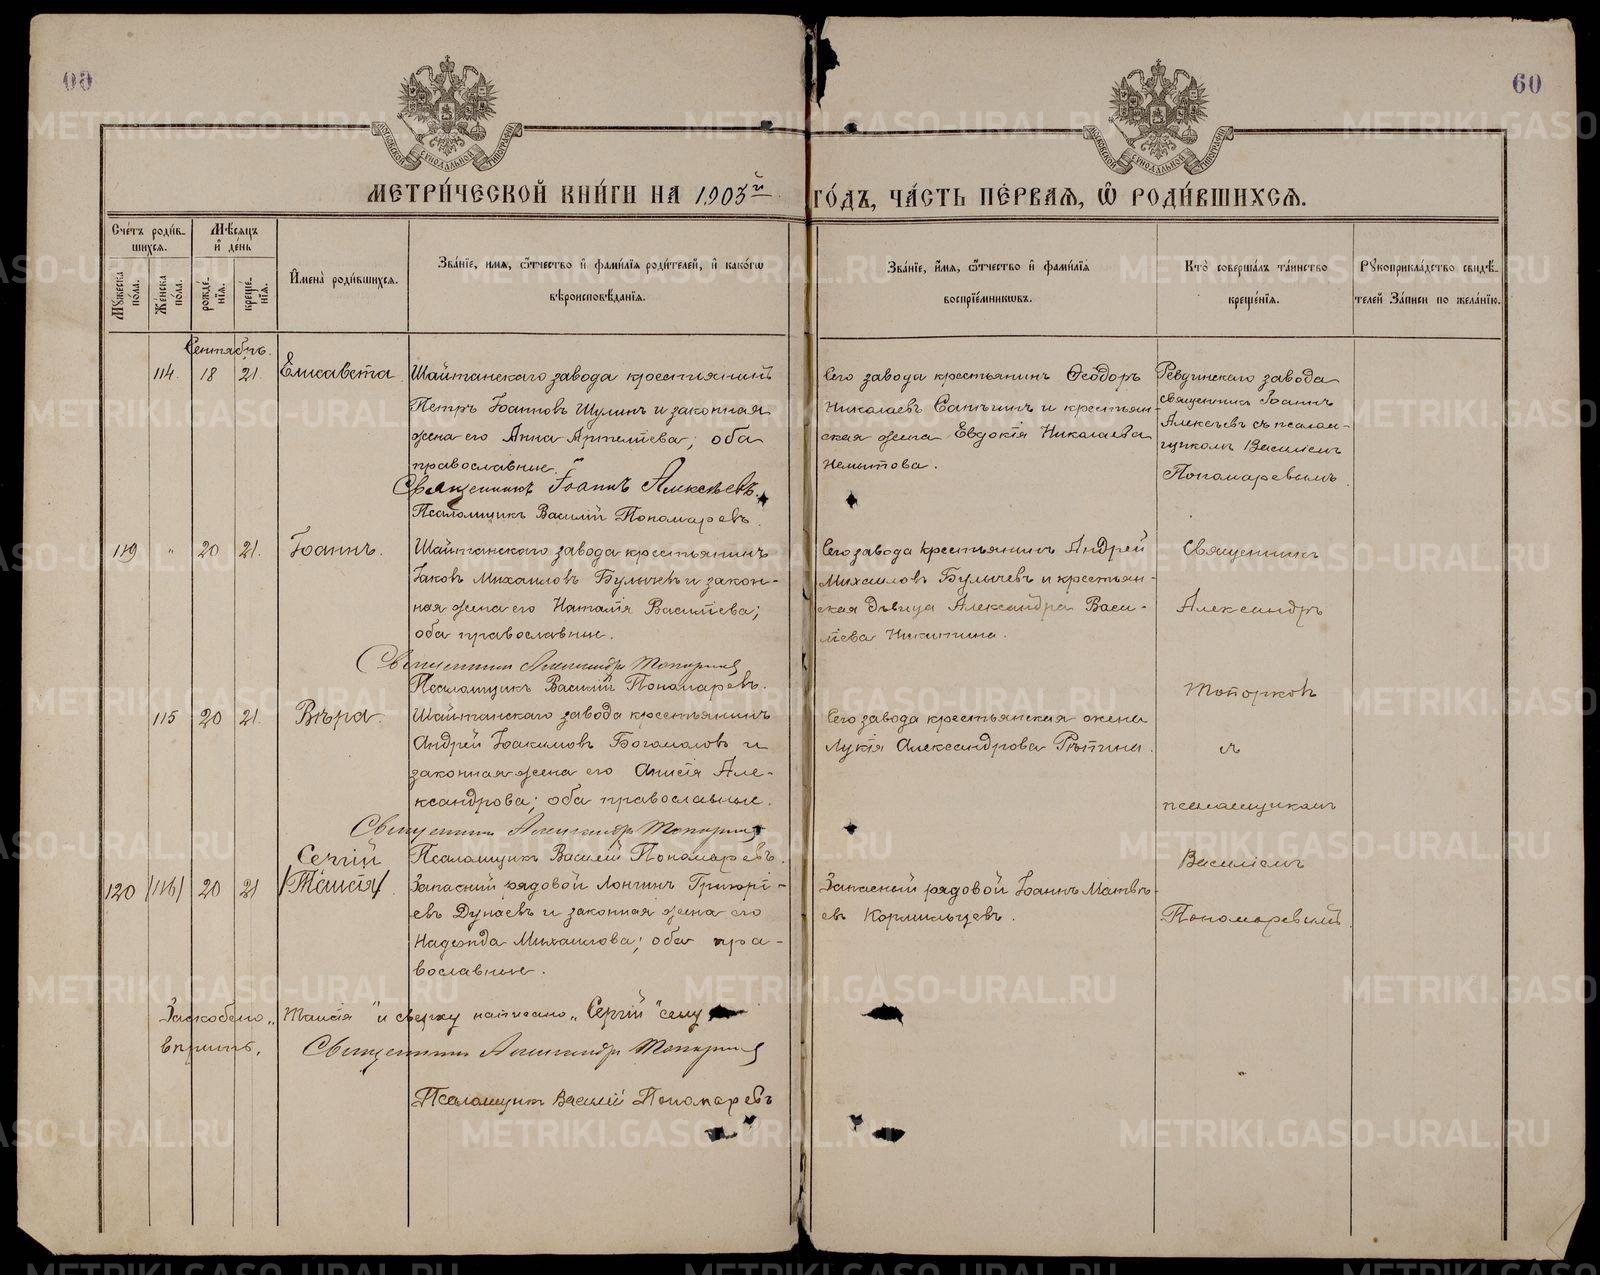 60
МЕТРИ́ЧЕСКОЙ КНИ́ГИ НА 1903й ГО́ДЪ, ЧА́СТЬ ПЕ́РВАЯ, Ѡ РОДИ́ВШИХСЯ.
МОСКОВСКОЙ СИНОДАЛЬНОЙ ТИПОГРАФІИ
МОСКОВСКОЙ СИНОДАЛЬНОЙ ТИПОГРАФІИ
Сче́тъ роди́вшихся.
Му́жеска по́ла.
Же́нска по́ла.
Мѣ́сяцъ и҆ де́нь
рожде́нїѧ.
креще́нїѧ.
И҆мена̀ роди́вшихся.
Зва́нїе, и҆́мѧ, ѻ҆́тчество и҆ фами́лїѧ роди́телей, и҆ како́гѡ
вѣроисповѣ́данїѧ.
Зва́нїе, и҆́мѧ, ѻ҆́тчество и҆ фами́лїѧ
воспрїе́мникѡвъ.
Кто̀ соверша́лъ та́инство
креще́нїѧ.
Рꙋкоприкла́дство свидѣ́-
телей За́писи по жела́нїю.
Сентябрь.
114. 18 21. Елисавета
Шайтанскаго завода крестьянинъ
Петръ Іоанновъ Шулинъ и законная
жена его Анна Артемиева; оба
православные.
Священникъ Іоаннъ Алексѣевъ.
Псаломщикъ Василій Пономаревъ.
Сего завода крестьянинъ Ѳеодоръ
Николаевъ Сапегинъ и крестьян-
ская жена Евдокія Николаева
Немытова.
Ревдинскаго завода
священникъ Іоаннъ
Алексѣевъ съ псалом-
щикомъ Василіемъ
Пономаревымъ.
119 " 20 21. Іоаннъ.
Шайтанскаго завода крестьянинъ
Іаковъ Михаиловъ Булычевъ и закон-
ная жена его Наталія Василіева;
оба православные.
Священникъ Александръ Топорковъ
Псаломщикъ Василій Пономаревъ.
Сего завода крестьянинъ Андрей
Михаиловъ Булычевъ и крестьян-
ская дѣвица Александра Васи-
ліева Никитина.
Священникъ
Александръ
Топорковъ
съ
псаломщикомъ
Василіемъ
Пономаревымъ.
115 20 21. Вѣра.
Шайтанскаго завода крестьянинъ
Андрей Іоакимовъ Богомоловъ и
законная жена его Анисія Але-
ксандрова; оба православные.
Священникъ Александръ Топорковъ
Псаломщикъ Василій Пономаревъ.
Сего завода крестьянская жена
Лукія Александрова Рѣпина.
Сергій
120 /116/ 20 21 /Таисія/
Запасный рядовой Лонгинъ Григорі-
евъ Дунаевъ и законная жена его
Надежда Михаилова; оба пра-
вославные.
Запасный рядовой Іоаннъ Матвѣ-
евъ Кормильцевъ.
Заскоблено „Таисія" и сверху написано „Сергій" сему
вѣрить.
Священникъ Александръ Топорковъ
Псаломщикъ Василій Пономаревъ
METRIKI.GASO-URAL.RU